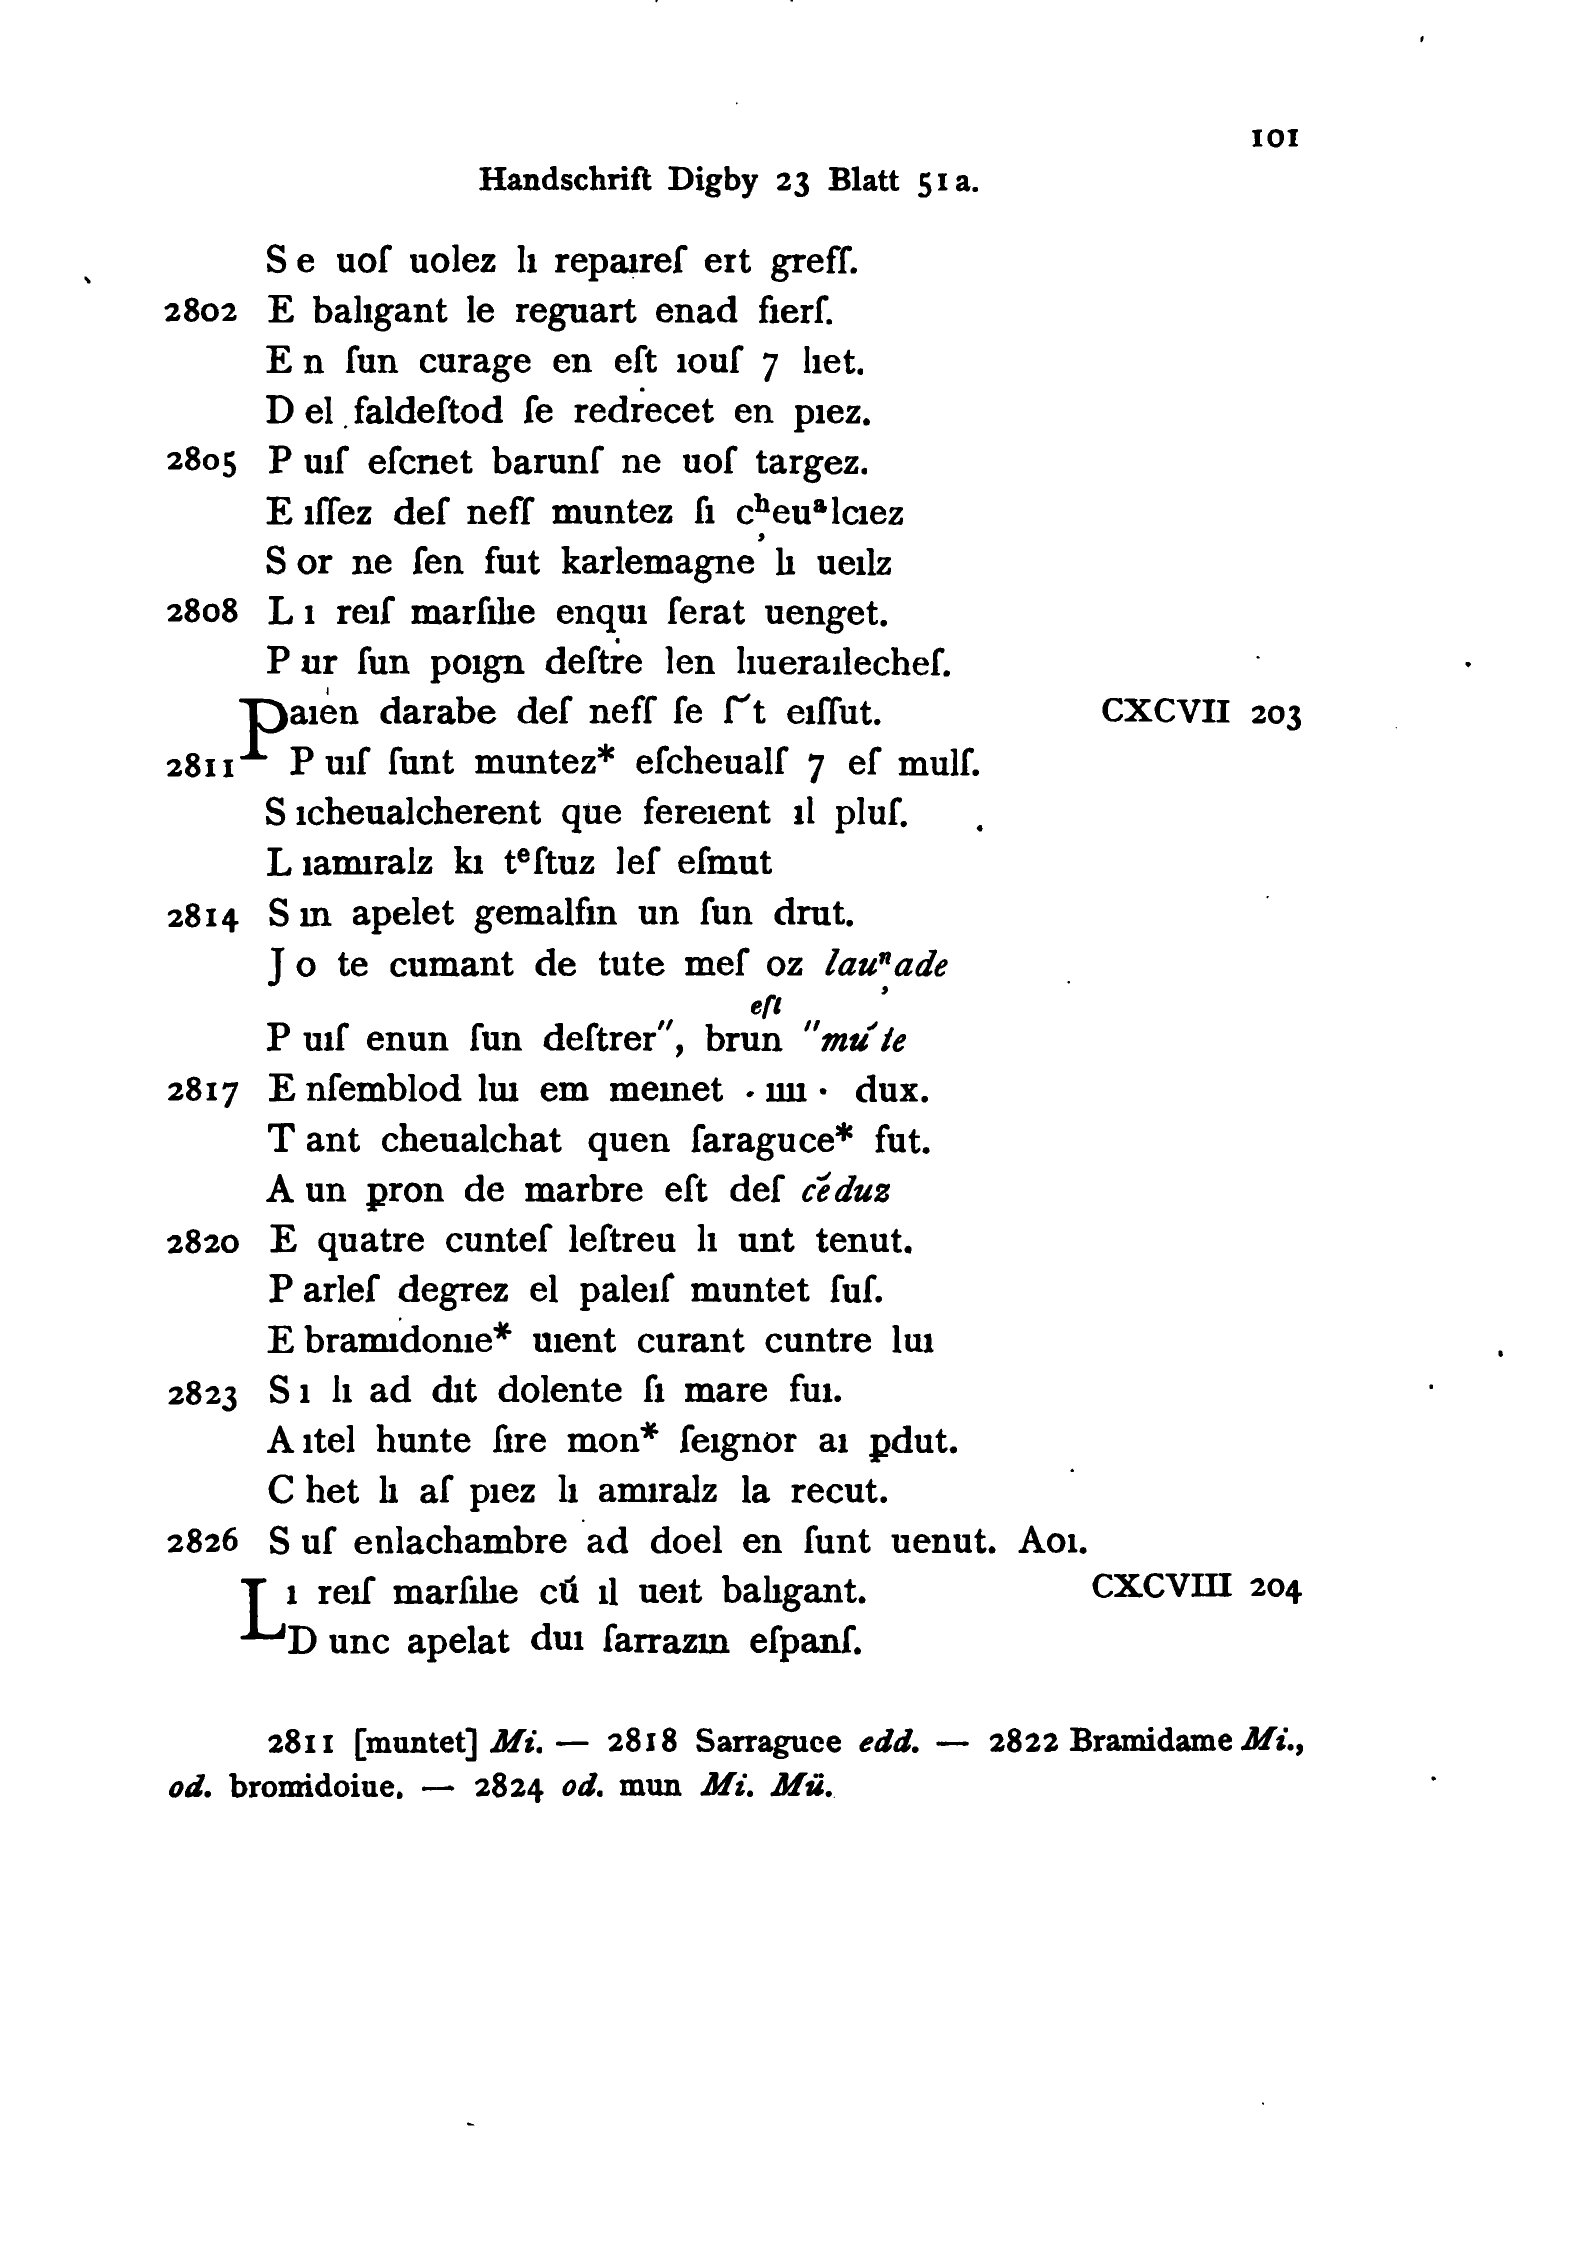 101
Handschrift Digby 23 Blatt 51a.
S e uoſ uolez lı repaıreſ ert greſſ.
2802 E balıgant le reguart enad fıerſ.
E n ſun curage en eſt ıouſ 7 lıet.
D el faldeſtod ſe redrecet en pıez.
2805 P uıſ eſcrıet barunſ ne uoſ targez.
E ıſſez deſ neſſ muntez ſı cʰeuᵃlcıez
S or ne ſen fuıt karlemagne ’ lı ueılz
2808 L ı reıſ marſılıe enquı ſerat uenget.
P ur ſun poıgn deſtre len lıueraılecheſ.
Paıen darabe deſ neſſ ſe ſ̃t eıſſut. CXCVII 203
2811 P uıſ ſunt muntez* eſcheualſ 7 eſ mulſ.
S ıcheualcherent que fereıent ıl pluſ.
L ıamıralz kı tᵉſtuz leſ eſmut
2814 S ın apelet gemalfın un ſun drut.
J o te cumant de tute meſ oz lauⁿade
eſt ’
P uıſ enun ſun deſtrer", brun "mu´te
2817 E nſemblod luı em meınet . ıııı . dux.
T ant cheualchat quen ſaraguce* fut.
A un ꝑron de marbre eſt deſ cēduz
2820 E quatre cunteſ leſtreu lı unt tenut.
P arleſ degrez el paleıſ muntet ſuſ.
E bramıdonıe* uıent curant cuntre luı
2823 S ı lı ad dıt dolente ſı mare fuı.
A ıtel hunte ſıre mon* ſeıgnor aı ꝑdut.
C het lı aſ pıez lı amıralz la recut.
2826 S uſ enlachambre ad doel en ſunt uenut. Aoı.
L ı reıſ marſılıe cū ıl ueıt balıgant. CXCVIII 204
D unc apelat duı ſarrazın eſpanſ.
2811 [muntet] Mi. — 2818 Sarraguce edd. — 2822 Bramidame Mi.,
od. bromidoiue. — 2824 od. mun Mi. Mü.